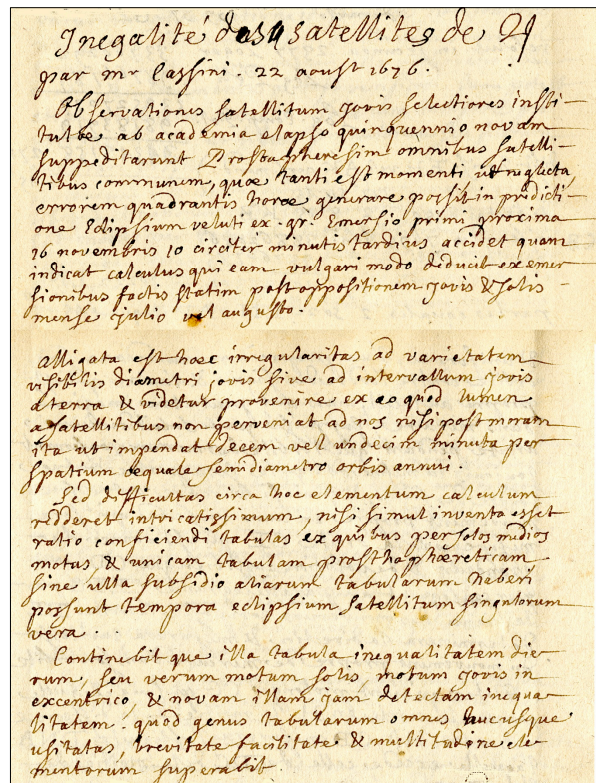 Inegalité des 4 satellites de ♃
par mr Cassini. 22 aoust 1676.
Observationes satellitum Jovis selectiores insti-
tutae ab academia elapso quinquennio novam
suppeditarunt Prosthapheresim omnibus satelli-
tibus communem, quae tanti est momenti ut neglecta,
errorem quadrantis horae generare possit in predicti-
one Eclipsium veluti ex. gr. Emersio primi proxima
16 novembris 10 circiter minutis tardius accidet quam
indicat calculus qui eam vulgari modo deducit ex emer
sionibus factis statim post oppositionem Jovis & solis
mense Julio vel augusto.
alligata est haec irregularitas ad varietatem
visibilis diametri Jovis sive ad intervallum Jovis
a terra & videtur provenire ex eo quod lumen
a satellitibus non perveniat ad nos nisi post moram
ita ut impendat decem vel undecim minuta per
spatium aequale semidiametro orbis annui.
Sed difficultas circa hoc elementum calculum
redderet intricatissimum, nisi simul inventa esset
ratio conficiendi tabulas ex quibus per solos medios
motus & unicam tabulam prosthaphaereticam
sine ulla subsidio aliarum tabularum haberi
possunt tempora eclipsium satellitum singulorum
vera.
Continebit que illa tabula inequalitatem die-
rum, seu verum motum solis, motum Jovis in
excentrico, & novam illam jam detectam inequa-
litatem. quod genus tabularum omnes hucusque
usitatas, brevitate facilitate & multitudine ele
mentorum superabit